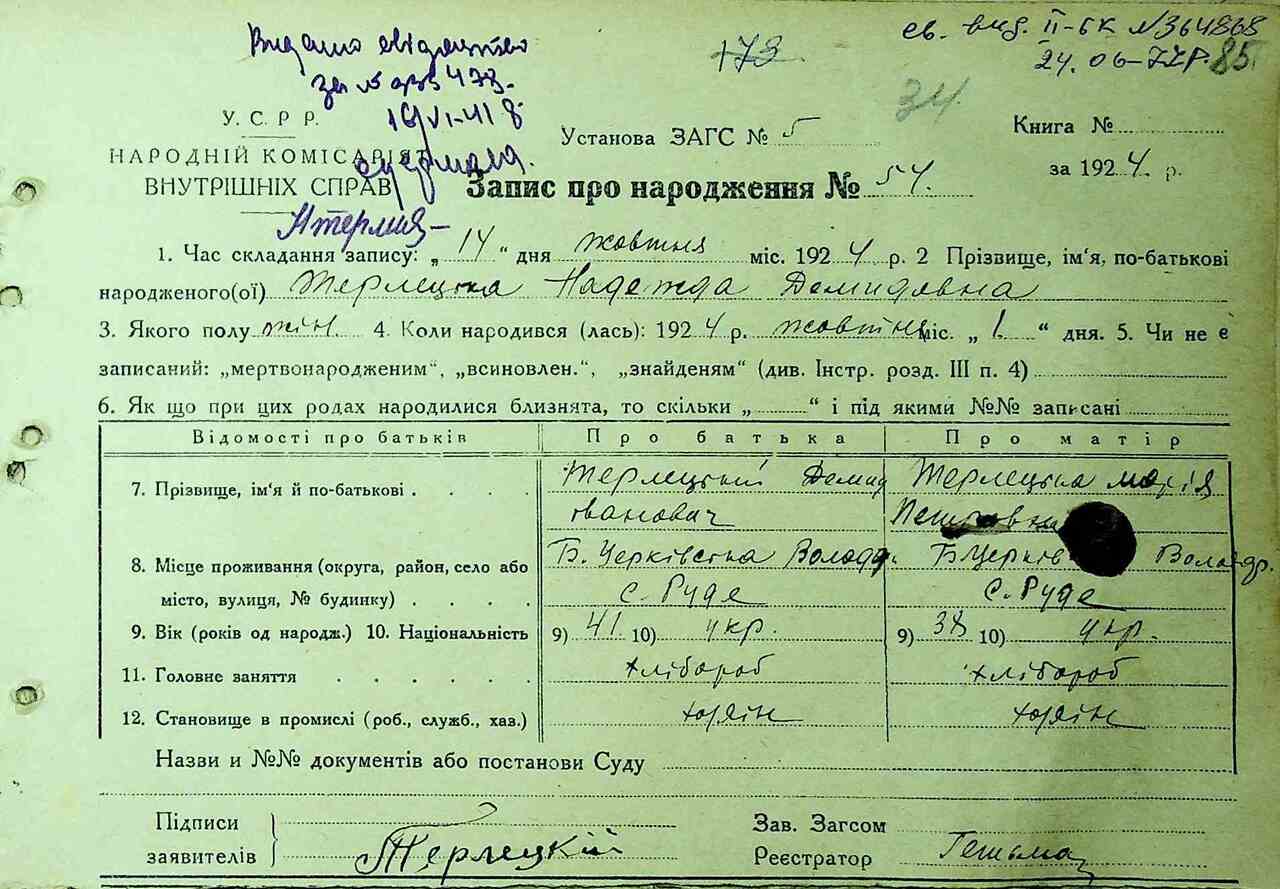 Видано свідоцтво
за № 473.
16/VI-41 р.
173
св. вид. II-БК №364868
24.06-77р. 85.
34
У. С. Р. Р.
НАРОДНІЙ КОМІСАРІЯТ
ВНУТРІШНІХ СПРАВ
Установа ЗАГС № 5
Книга №
за 1924 р.
Запис про народження № 54.
1. Час складання запису: „14“ дня жовтня міс. 1924 р. 2 Прізвище, ім'я, по-батькові
народженого(ої) Терлецька Надежда Демидовна
3. Якого полу жін. 4. Коли народився (лась): 1924 р. жовтня міс. „1“ дня. 5. Чи не є
записаний: „мертвонародженим“, „всиновлен.“, „знайденям“ (див. Інстр. розд. III п. 4)
6. Як що при цих родах народилися близнята, то скільки „ “ і під якими №№ записані
Відомості про батьків Про батька Про матір
7. Прізвище, ім'я й по-батькові . . . . Терлецький Демид Терлецька Марія
іванович
8. Місце проживання (округа, район, село або Б. Церківська Волод. Б. Церків Волод.
місто, вулиця, № будинку) . . . . с. Руде с. Руде
9. Вік (років од народж.) 10. Національність 9) 41 10) укр. 9) 38 10) укр.
11. Головне заняття . . . . . . хлібороб хлібороб
12. Становище в промислі (роб., служб., хаз.) хазяїн хазяїн
Назви и №№ документів або постанови Суду
Підписи
заявителів Терлецкій
Зав. Загсом
Реєстратор